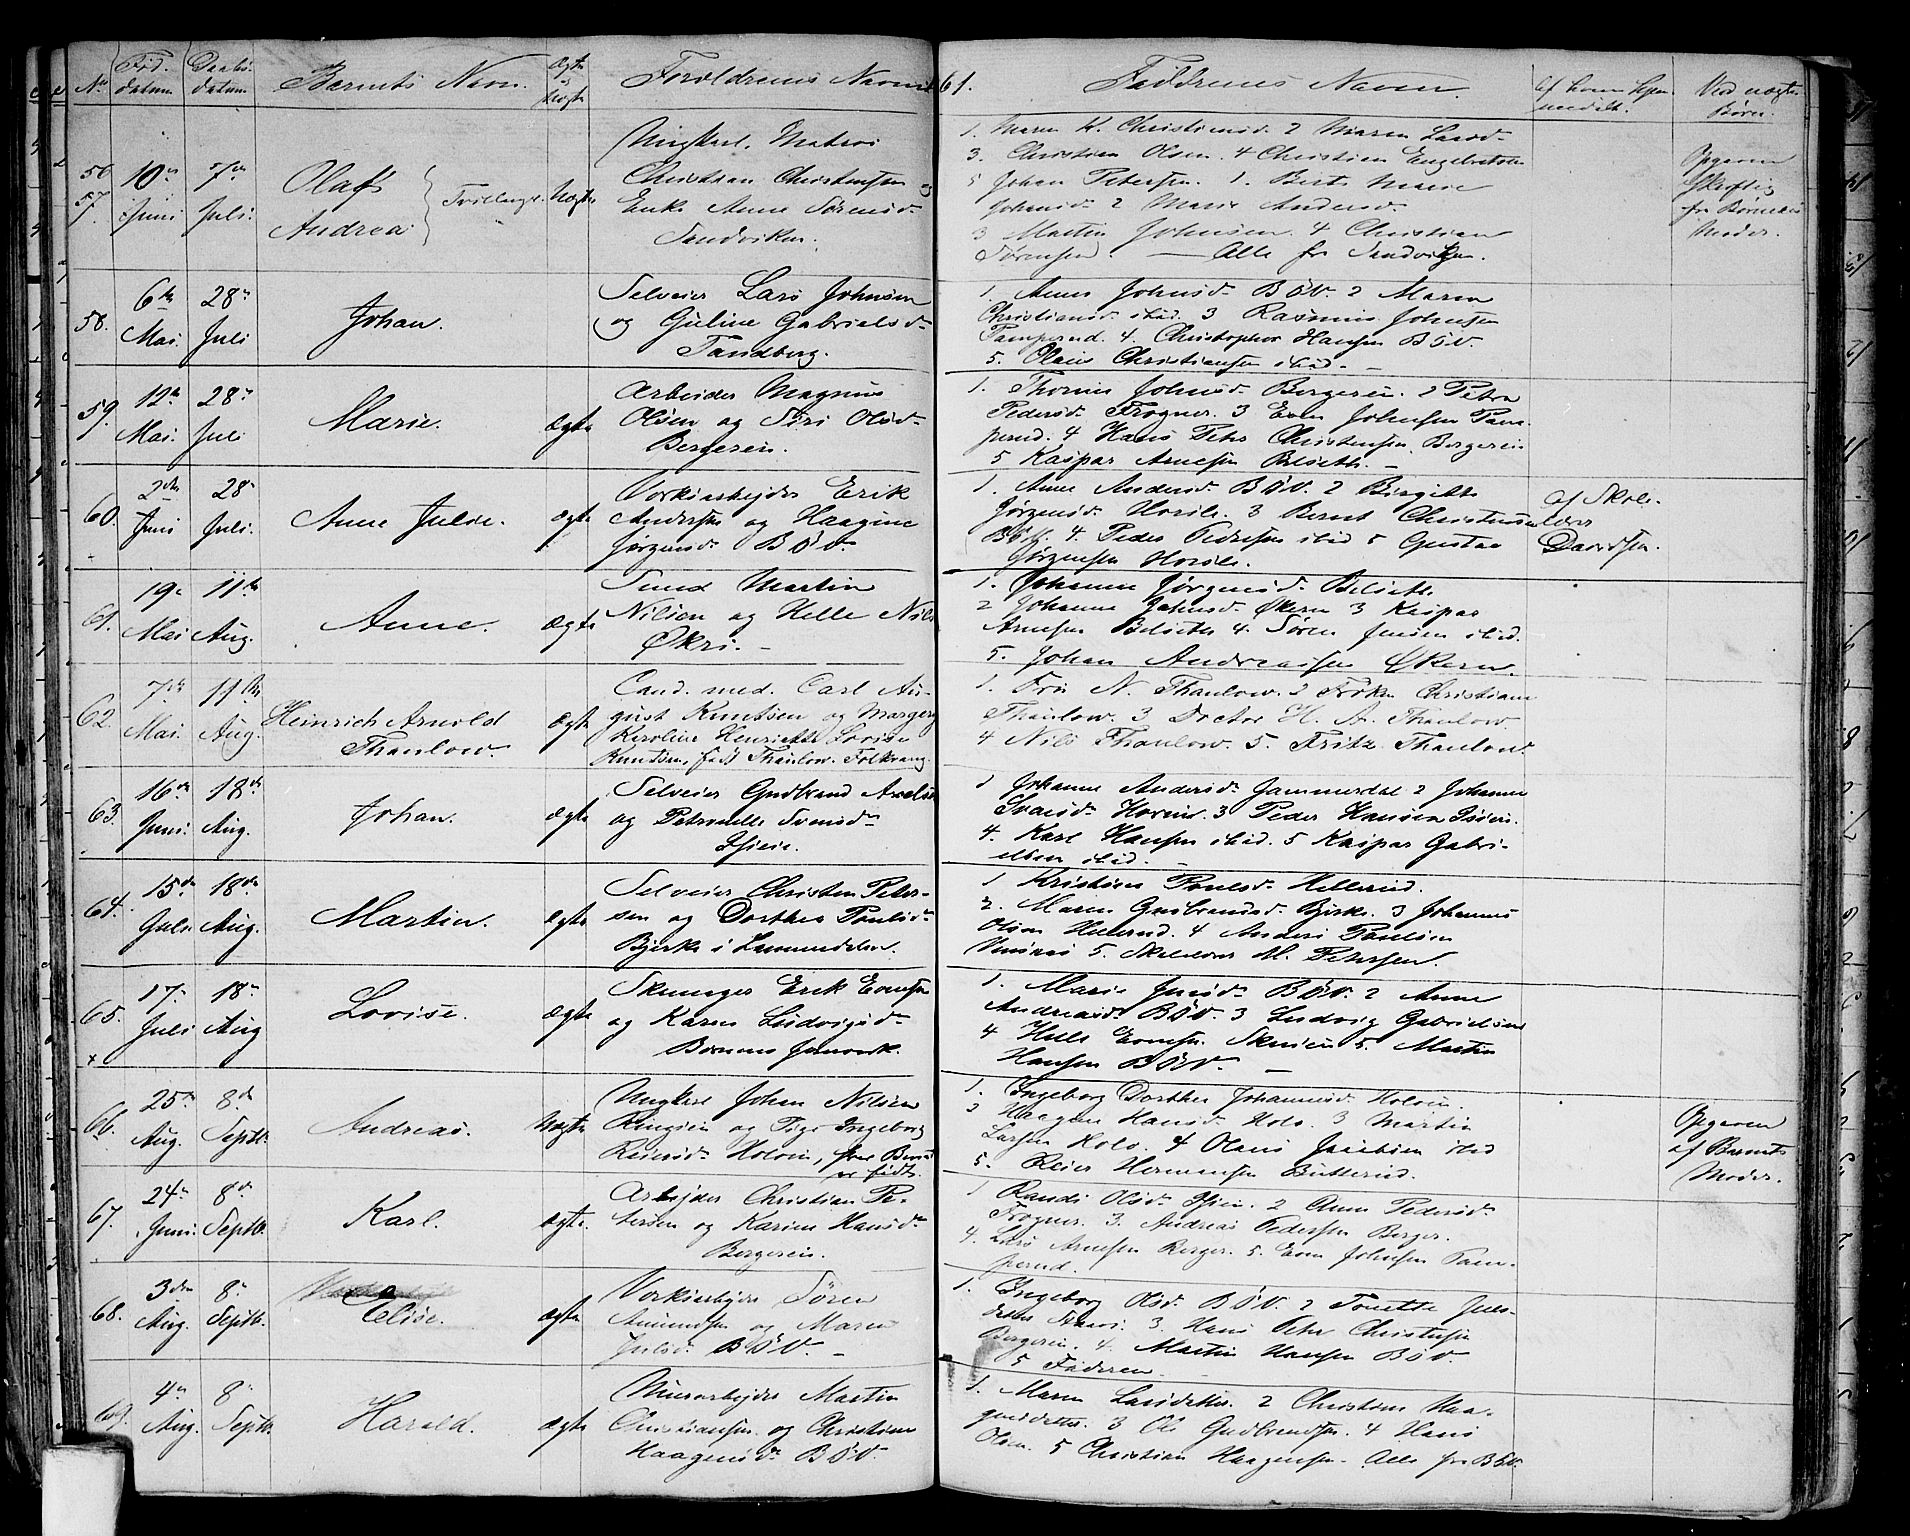 No
Fød. datum
Daabs. datum
Barnets Navn.
Ægte o. Uægte
Forældrenes Navne
61.
Faddrenes Navne.
af hvem hjem meddelt.
Ved uægte Børn.
56
57.
10de Juni
7de Juli.
Olaf
Andrea
Tvillinger.
Uægte
Ungkarl, Matros
Christian Christensen og
Enke Anne Sørensd.
Sandviken.
1. Maren K. Christiansd. 2 Maren Larsd.
3. Christian Olsen. 4 Christian Engebretsen
5 Johan Petersen. 1. Berte Marie
Johansd. 2 Marie Andersd.
3 Martin Johnsen. 4 Christian
Sørensen. — Alle fra Sandvigen.
Opgaven
skriftlig
fra Børnenes
Moder.
58.
6te Mai.
28de Juli
Johan.
Selveier Lars Johnsen
og Guline Gabrielsd.
Tandberg.
1. Anne Johnsd. BÖV. 2 Maren
Christiansd. ibid. 3 Rasmus Johnsen
Tamperud. 4. Christopher Hansen BÖV.
5. Olaus Christiansen ibid. -
59.
12te Mai.
28de Juli
Marie.
Ægte
Arbeider Magnus
Olsen og Siri Olsd.
Bergereie.
1. Thorine Johnsd. Bergereie. 2 Petra
Pedersd. Frogner. 3 Even Johnsen Tam-
perud. 4 Hans Peter Christensen, Bergereie
5 Kaspar Arnesen Belseth. -
60.
2den Juni
28de Juli.
Anne Julie.
ægte
Værksarbejder Erik
Andersen og Haagine
Jørgensd. BÖV.
1. Anne Andersd. BÖV. 2 Birgitte
Jørgensd. Horsle. 3 Bernt Christensen
BÖV. 4. Peder Pedersen ibid 5 Gustav
Jørgensen Horsle.
af Skole-
lærer
Davidsen.
61.
19de Mai
11te Aug.
Anne.
Ægte
Smed Martin
Nilsen og Helle Nils
Økri. -
1. Johanne Jørgensd. Belseth.
2 Johanne Johnsd. Økern 3 Kaspar
Arnesen Belseth 4. Søren Jensen ibid.
5. Johan Andreassen Økern.
62.
7de Mai.
11te Aug.
Heinrich Arnold
Thaulow.
Ægte
Cand. med. Carl Au-
gust Knutsen og Margery
Karoline Henriette Lovise
Knutsen, født Thaulow. Folkvang.
1. Fru N. Thaulow. 2 Frøken Christiane
Thaulow. 3 Doctor H. A. Thaulow.
4 Nils Thaulow. 5. Fritz Thaulow.
63.
16de Juni.
18de Aug.
Johan.
ægte
Selveier Gudbrand Axelsen
og Petronelle Svensd.
Isieie.
1 Johanne Andersd. Jammerdal 2 Johanne
Svensd. Horni 3 Peder Hansen Isieie.
4. Karl Hansen ibid. 5 Kaspar Gabri-
elsen ibid. -
64.
15de Juli
18de Aug.
Martin.
ægte
Selveier Christen Peter-
sen og Dorthea Paulsd.
Bjerke i Lommedalen.
1 Kristine Paulsd. Hellerud.
2. Maren Gudbrandsd. Bjerke. 3 Johannes
Olsen Hellerud. 4 Anders Paulsen
5. Skolelærer M. Petersen.
65.
x
17de Juli
18de Aug
Lovise.
ægte
Erik Evensen
og Karen Ludvigsd.
Bærums Jernværk.
1. Marie Jensd. BÖV. 2 Anne
Andreasd. BÖV. 3 Ludvig Gabrielsen
4 Helle Evensen. 5. Martin
Hansen BÖV. -
66.
25de Aug.
8de Septb.
Andreas.
Uægte
Ungkarl Johan Nilsen
Ringeie og Pige Ingeborg
Reiersd. Holveie, hvor Barnet
er født.
1. Ingeborg Dorthea Johannesd. Holveie.
2 Haagine Hansd. Holv. 3 Martin
Larsen Holv. 4 Olaus Jacobsen ibid
5. Reier Hermansen Butterud.
Opgaven
af Barnets
Moder.
67.
24de Juni.
8de Septb.
Karl.
ægte.
Arbejder Christian Pe-
tersen og Karine Hansd.
Bergereie.
1 Randi Olsd. Isieie. 2 Anne Pedersd.
Frogner. 3. Andreas Pedersen Berger.
4. Lars Arnesen Berger. 5. Even Johnsen Tam-
perud.
68.
3den Aug.
8de Septb.
Elise.
ægte
Værksarbejder Søren
Amundsen og Maren
Julsd. BÖV. -
1. Ingeborg Olsd. BÖV. 2 Tonette Juls-
3. Hans Peter Christensen
Bergereie. 4. Martin Hansen BÖV.
5 Faderen.
69.
4de Aug.
8de Septb.
Harald.
ægte
Murarbejder Martin
Christiansen og Christine
Haagensd. BÖV.
1. Maren Larsdatter. 2 Christine Haa-
gensdatter. 3 Ole Gudbrandsen. 4 Hans
Olsen. 5 Christian Haagensen. Alle fra BÖV.